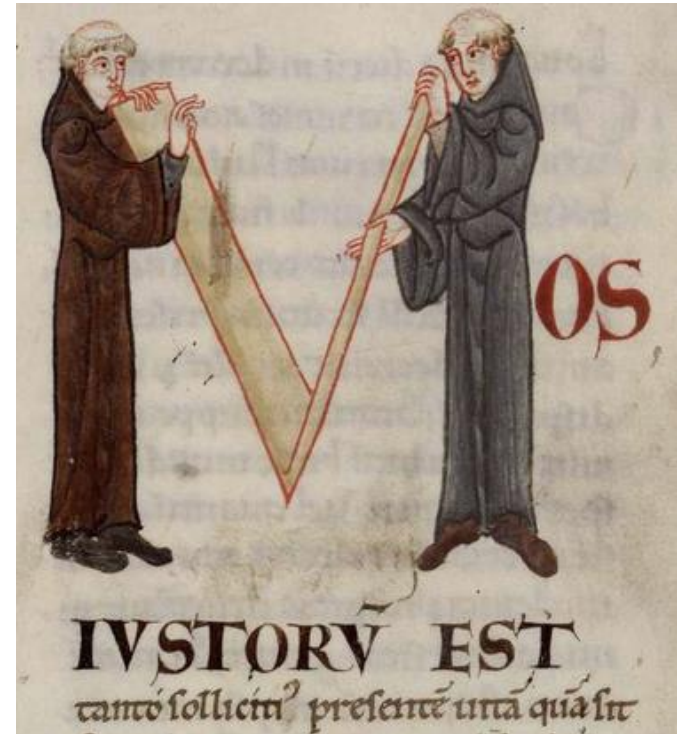 MOS
IVSTORV̄ EST
tanto ſollicitiꝰ preſentē uitā quā ſit